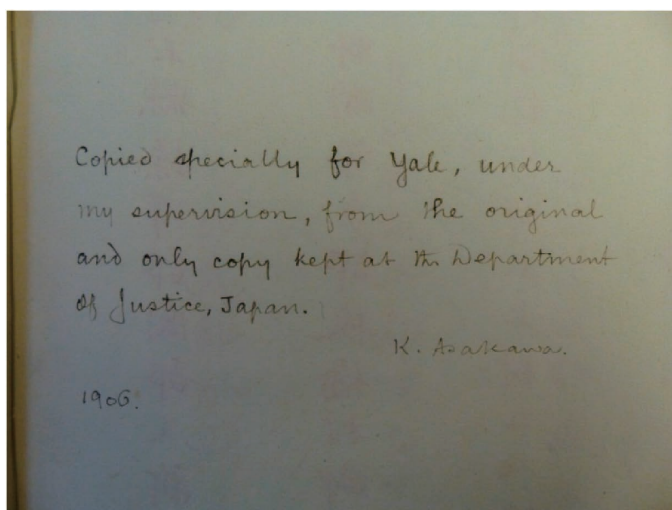 Copied specially for Yale, under
my supervision, from the original
and only copy kept at the Department
of Justice, Japan.
K. Asakawa.
1906.